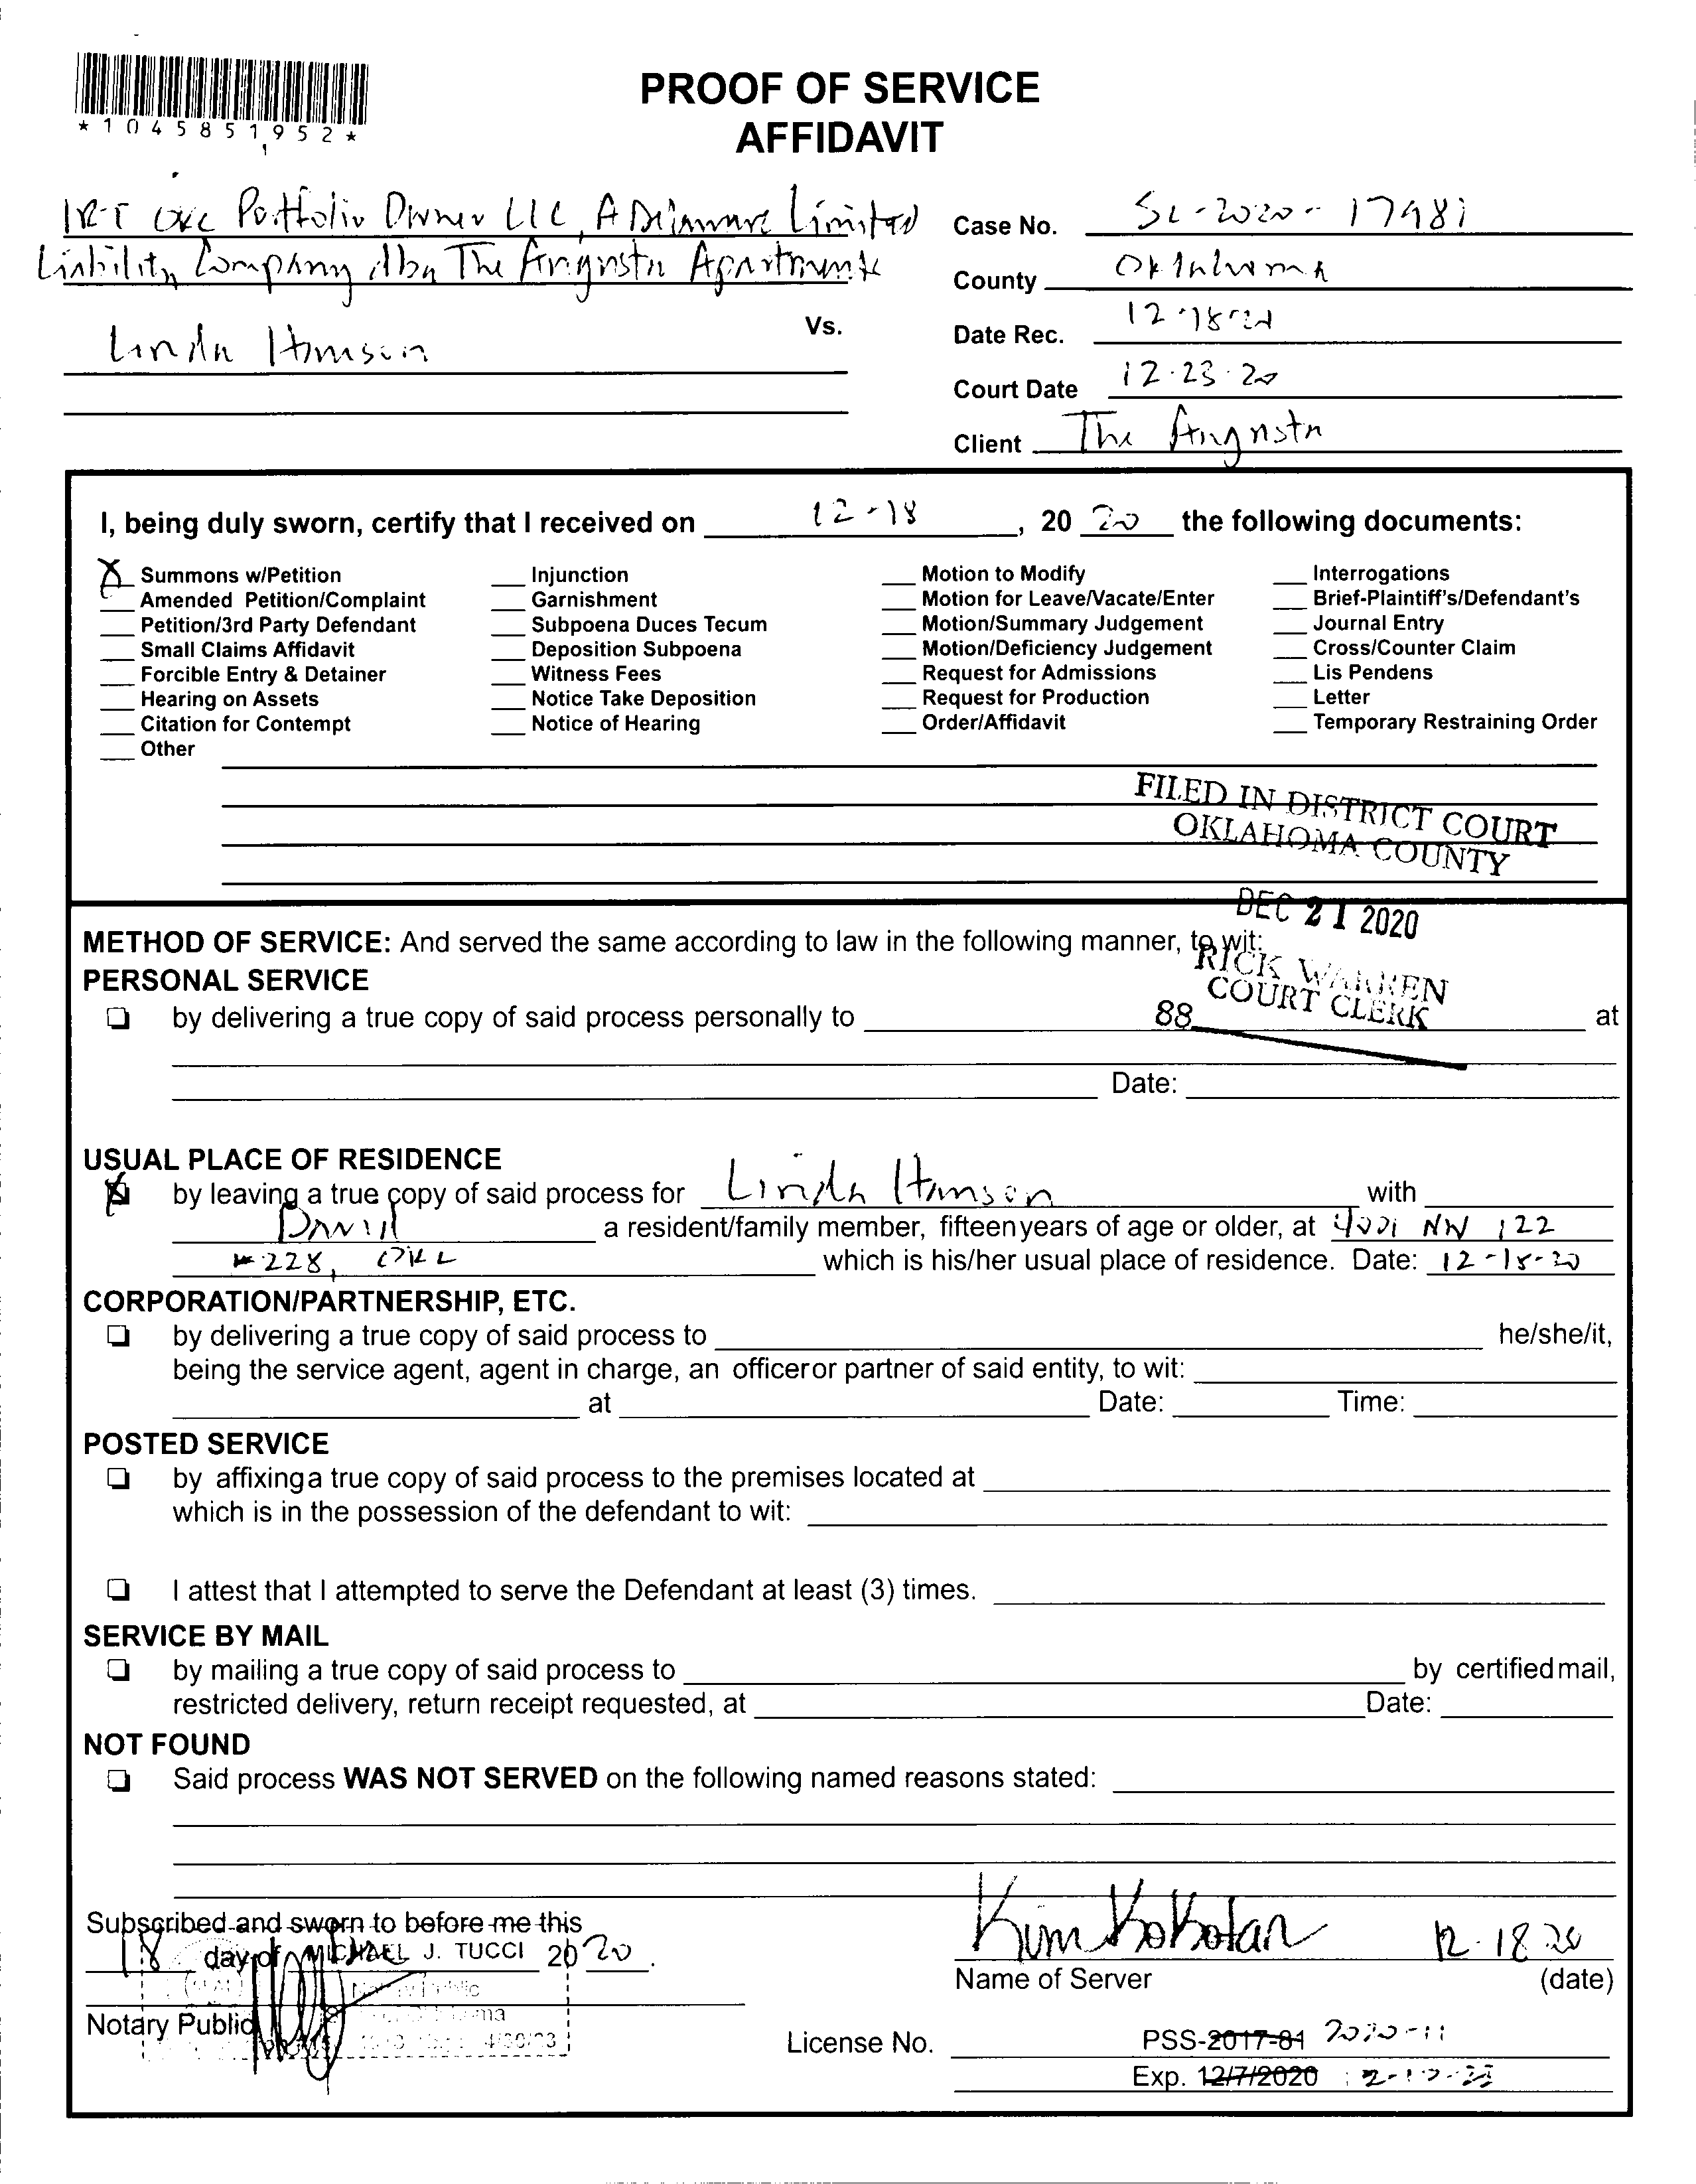 *1045851952*
PROOF OF SERVICE
AFFIDAVIT
IRT OKC Portfolio Owner LLC, A Delaware Limited
Liability Company dba The Augusta Apartments
Vs.
Linda
Case No. SC-2020-17981
County Oklahoma
Date Rec. 12-18-20
Court Date 12-23-20
Client The Augusta
I, being duly sworn, certify that I received on 12-18, 20 20 the following documents:
X Summons w/Petition
Amended Petition/Complaint
Petition/3rd Party Defendant
Small Claims Affidavit
Forcible Entry & Detainer
Hearing on Assets
Citation for Contempt
Other
Injunction
Garnishment
Subpoena Duces Tecum
Deposition Subpoena
Witness Fees
Notice Take Deposition
Notice of Hearing
Motion to Modify
Motion for Leave/Vacate/Enter
Motion/Summary Judgement
Motion/Deficiency Judgement
Request for Admissions
Request for Production
Order/Affidavit
Interrogations
Brief-Plaintiff's/Defendant's
Journal Entry
Cross/Counter Claim
Lis Pendens
Letter
Temporary Restraining Order
FILED IN DISTRICT COURT
OKLAHOMA COUNTY
DEC 21 2020
RICK WARREN
COURT CLERK
88
METHOD OF SERVICE: And served the same according to law in the following manner, to wit:
PERSONAL SERVICE
by delivering a true copy of said process personally to at
Date:
USUAL PLACE OF RESIDENCE
X by leaving a true copy of said process for Linda with
a resident/family member, fifteen years of age or older, at 4001 NW 122
#228, OKC which is his/her usual place of residence. Date: 12-18-20
CORPORATION/PARTNERSHIP, ETC.
by delivering a true copy of said process to he/she/it,
being the service agent, agent in charge, an officer or partner of said entity, to wit:
at Date: Time:
POSTED SERVICE
by affixing a true copy of said process to the premises located at
which is in the possession of the defendant to wit:
I attest that I attempted to serve the Defendant at least (3) times.
SERVICE BY MAIL
by mailing a true copy of said process to by certified mail,
restricted delivery, return receipt requested, at Date:
NOT FOUND
Said process WAS NOT SERVED on the following named reasons stated:
Subscribed and sworn to before me this
18 day of 2020.
MICHAEL J. TUCCI
Notary Public
Notary Public
Kim Kobotan 12-18 20
Name of Server (date)
License No. PSS-2017-81 2020-11
Exp. 12/7/2020